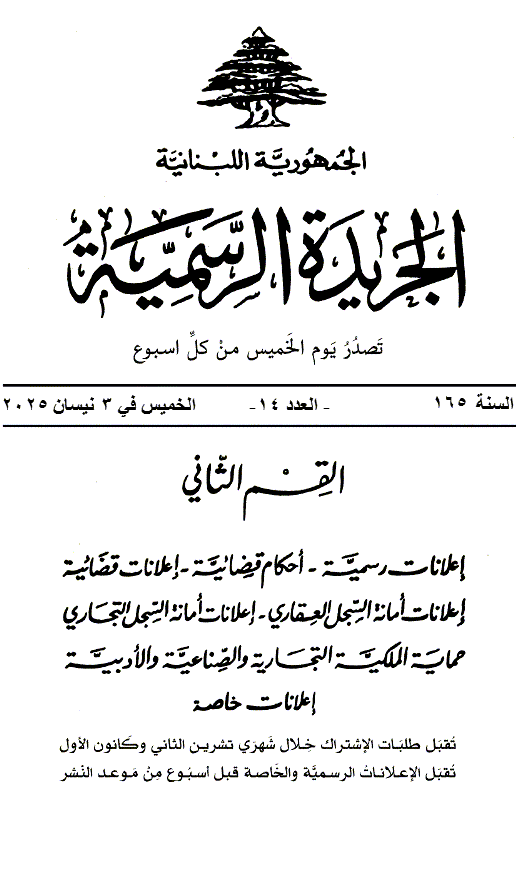 الجمهورية اللبنانية
الجريدة الرسمية
تَصدُرُ يَوم الخَميس منْ كلِّ اسبوع
السنة ١٦٥ - العدد ١٤ - الخميس في ٣ نيسان ٢٠٢٥
القِسْم الثّاني
إعلانات رسميَّة - أحكام قضائيَّة - إعلانات قضائية
إعلانات أمانة السِّجل العِقاري - إعلانات أمانة السِّجل التجاري
حماية الملكيَّة التجارية والصِّناعيَّة والأدبيَّة
إعلانات خاصة
تُقبَل طلبَات الإشتراك خِلال شَهرَي تشرين الثاني وكَانون الأول
تُقبَل الإعلاناتُ الرسميَّة والخَاصة قبل أسبُوع مِنْ مَوعد النَشر